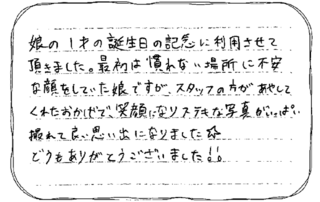 娘の1才の誕生日の記念に利用させて
頂きました。最初は慣れない場所に不安
な顔をしていた娘ですが、スタッフの方があやして
くれたおかげで、笑顔になりステキな写真がいっぱい
撮れて良い思い出になりました☆
どうもありがとうございました!!